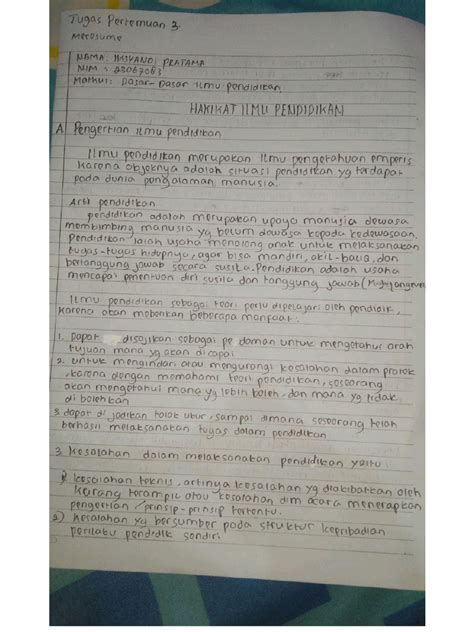 Tugas Pertemuan 3.
Meresume
NAMA: IRSYANDI PRATAMA
NIM : 23067083
Matkul: Dasar-Dasar ilmu pendidikan
HAKIKAT ILMU PENDIDIKAN
A Pengertian ilmu pendidikan
Ilmu pendidikan merupakan ilmu pengetahuan emperis
karena objeknya adalah situasi pendidikan yg terdapat
pada dunia pengalaman manusia.
Arti pendidikan
pendidikan adalah merupakan upaya manusia dewasa
membimbing manusia yg belum dewasa kepada kedewasaan.
Pendidikan ialah usaha menolong anak untuk melaksanakan
tugas-tugas hidupnya, agar bisa mandiri, akil-baua, dan
bertanggung jawab secara susila. Pendidikan adalah usaha
mencapai penentuan diri susila dan tanggung jawab
Ilmu pendidikan sebagai teori perlu dipelajari oleh pendidik,
karena akan meberikan beberapa manfaat:
1. Dapat disajikan sebagai pe doman untuk mengetahui arah
tujuan mana yg akan di capai
2. untuk mengindari atau mengurangi kesalahan dalam praktek
, karena dengan memahami teori pendidikan, seseorang
akan mengetahui mana yg lebih boleh, dan mana yg tidak
di bolehkan
3. dapat di jadikan tolak ukur, sampai dimana seseorang telah
berhasil melaksanakan tugas dalam pendidikan
3 kesalahan dalam melaksanakan pendidikan yaitu:
1) kesalahan teknis, artinya kesalahan yg diakibatkan oleh
kurang terampil atau kesalahan dlm acara menerapkan
pengertian /prinsip-prinsip tertentu.
2) Kesalahan yg bersumber pada struktur kepribadian
perilaku pendidik sendiri